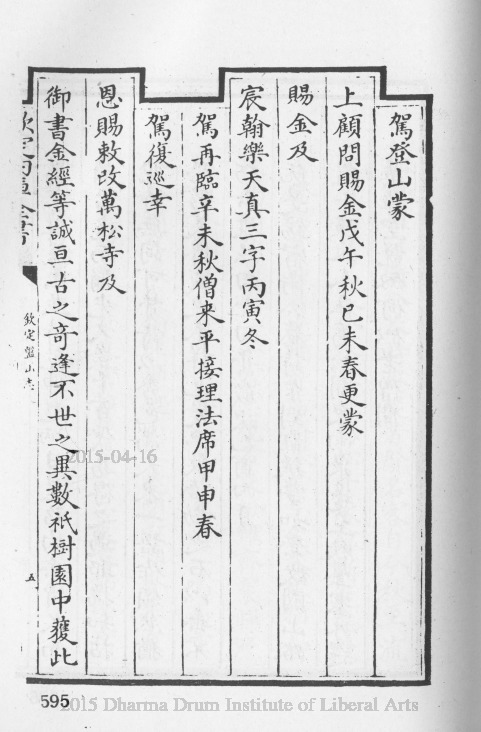 駕登山蒙
上顧問賜金戊午秋已未春更蒙
賜金及
宸翰樂天真三字丙寅冬
駕再臨辛未秋僧来平接理法席甲申春
駕復巡幸
恩賜敕改萬松寺及
御書金經等誠亘古之竒逢不世之異數祇樹園中獲此
欽定四庫全書
欽定盤山志
五
595
2015-04-16
2015 Dharma Drum Institute of Liberal Arts